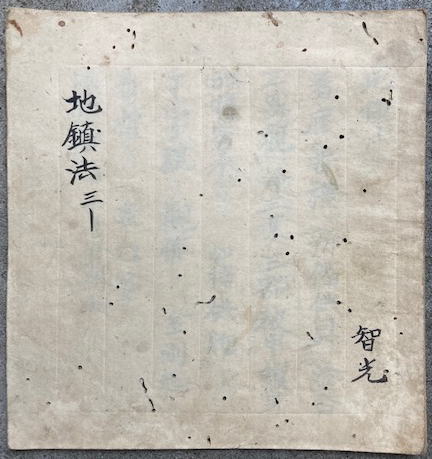 地鎮法 三〡
智光